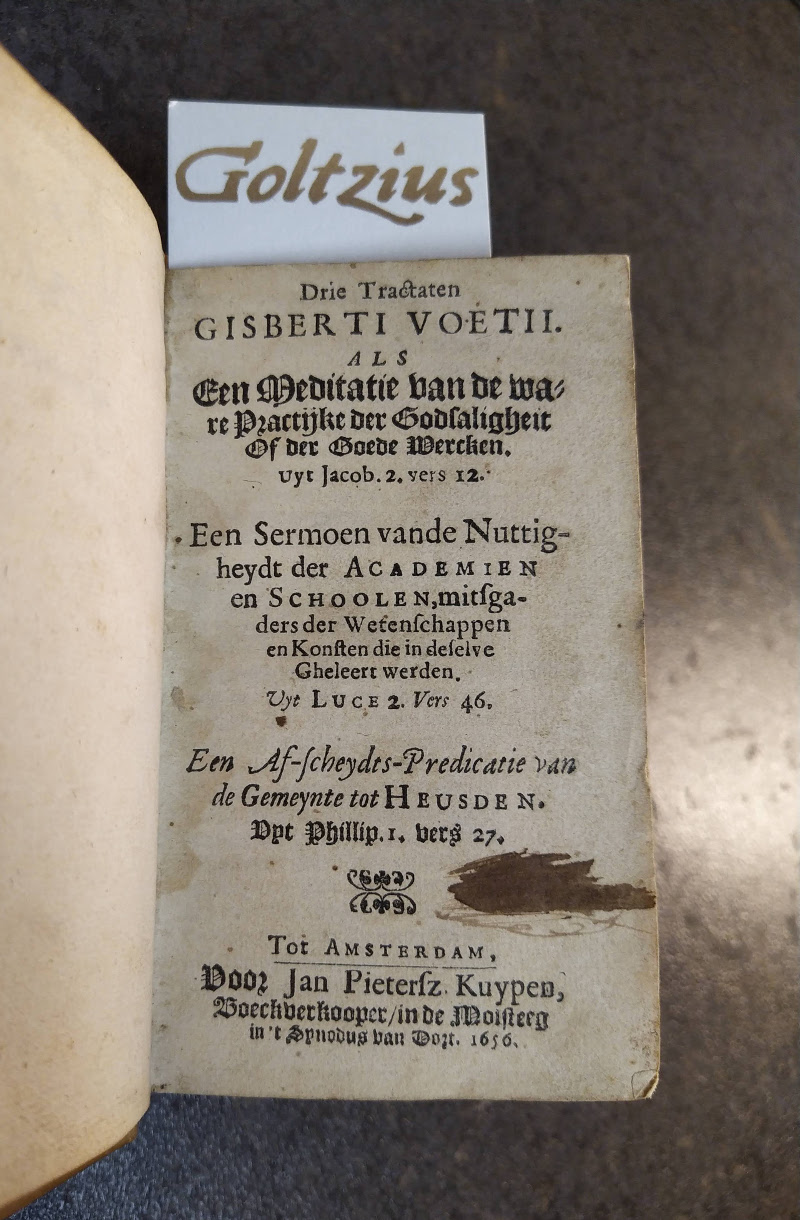 Goltzius
Drie Tractaten
GISBERTI VOËTII.
ALS
Een Meditatie van de wa-
re Practijke der Godſaligheit
Of der Goede Wercken.
Uyt Jacob. 2. vers 12.
Een Sermoen vande Nuttig-
heydt der ACADEMIEN
en SCHOOLEN, mitſga-
ders der Wetenſchappen
en Konſten die in deſelve
Gheleert werden.
Uyt LUCE 2. Vers 46.
Een Af-ſcheydts-Predicatie van
de Gemeynte tot HEUSDEN.
Uyt Phillip. 1. vers 27.
Tot AMSTERDAM,
Voor Jan Pieterſz. Kuypen,
Boeckverkooper / in de Moiſteeg
in 't Synodus van Dort. 1656.